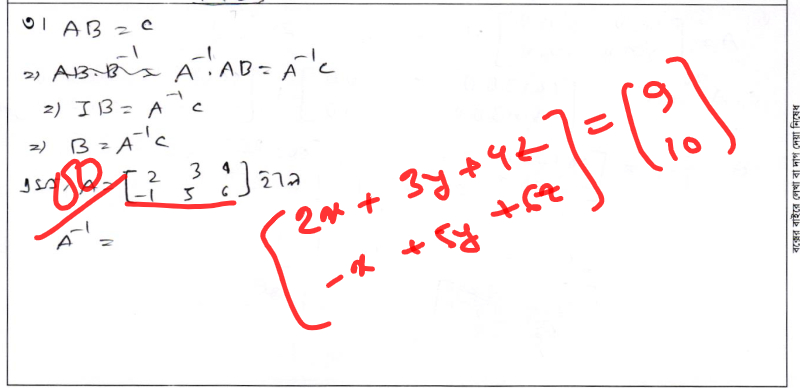 ৩। AB = C
⇒ AB·B⁻¹ = A⁻¹·AB = A⁻¹C
⇒ IB = A⁻¹C
⇒ B = A⁻¹C
A = [2 3 4
-1 5 6] হলে
A⁻¹ =
[2x + 3y + 4z
-x + 5y + 6z] = (9
10)
বক্সের বাইরে লেখা বা দাগ দেয়া নিষেধ